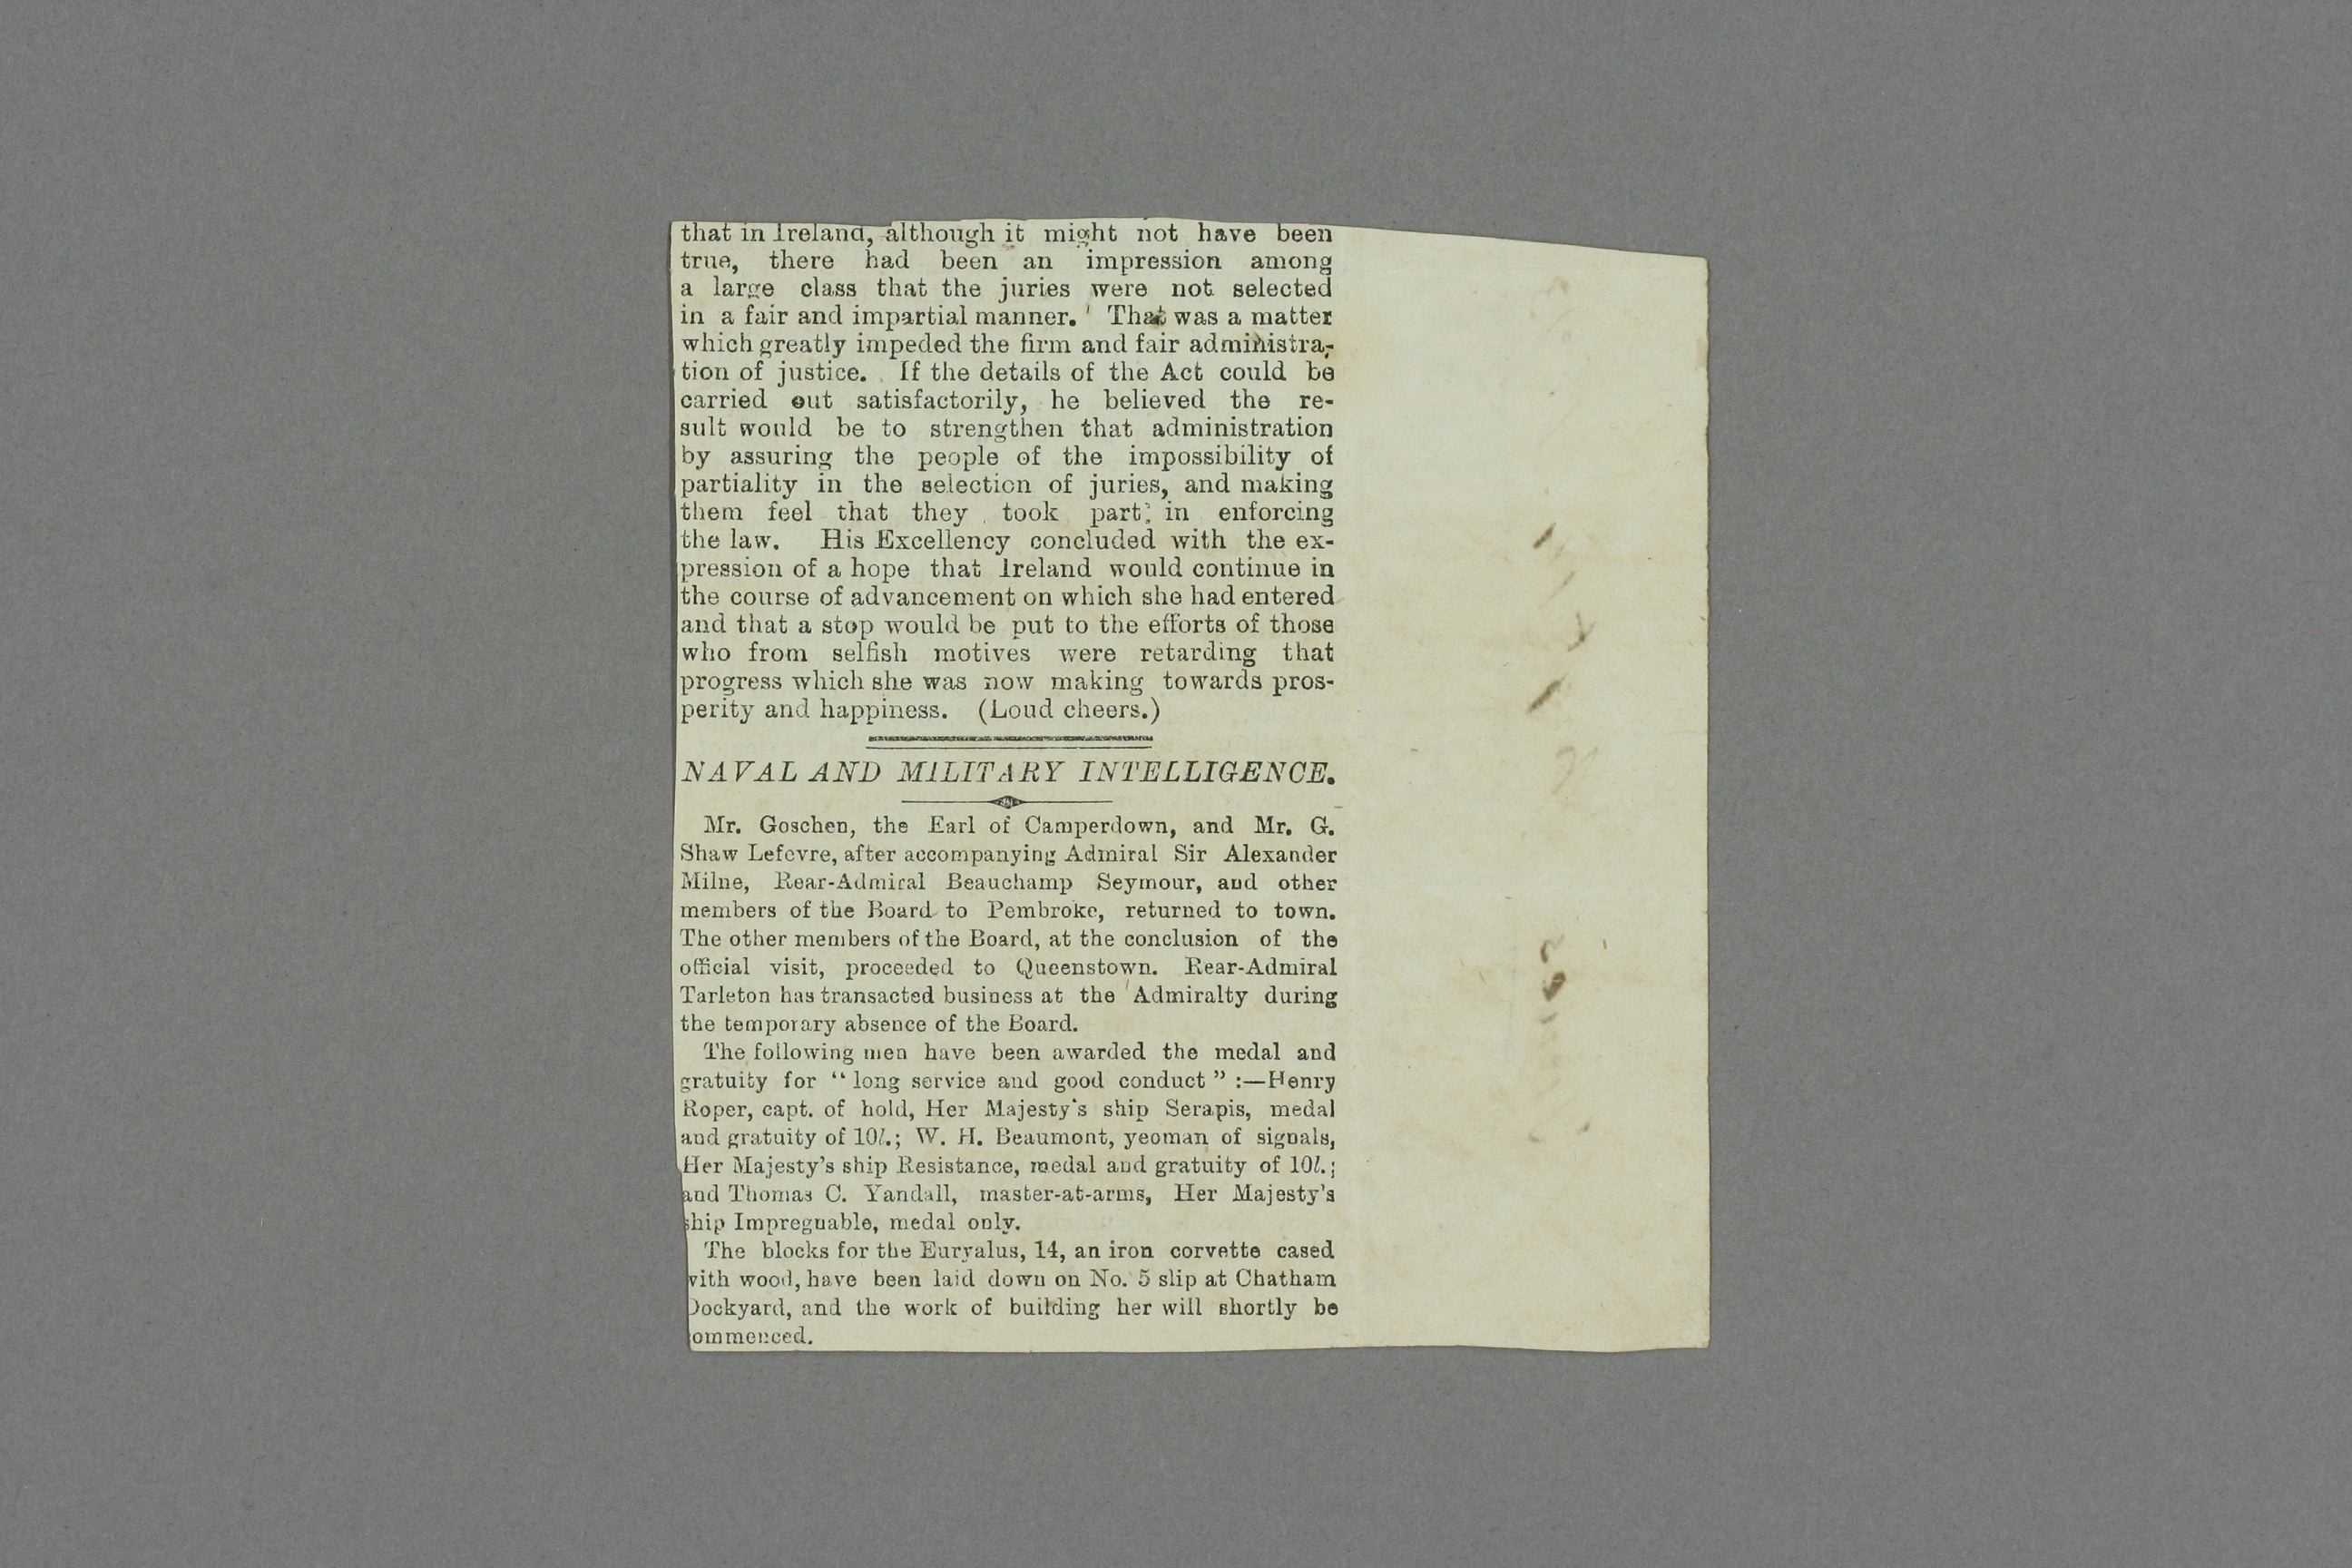 that in Ireland, although it might not have been
true, there had been an impression among
a large class that the juries were not selected
in a fair and impartial manner. That was a matter
which greatly impeded the firm and fair administra-
tion of justice. If the details of the Act could be
carried out satisfactorily, he believed the re-
sult would be to strengthen that administration
by assuring the people of the impossibility of
partiality in the selection of juries, and making
them feel that they took part in enforcing
the law. His Excellency concluded with the ex-
pression of a hope that Ireland would continue in
the course of advancement on which she had entered
and that a stop would be put to the efforts of those
who from selfish motives were retarding that
progress which she was now making towards pros-
perity and happiness. (Loud cheers.)
NAVAL AND MILITARY INTELLIGENCE.
Mr. Goschen, the Earl of Camperdown, and Mr. G.
Shaw Lefevre, after accompanying Admiral Sir Alexander
Milne, Rear-Admiral Beauchamp Seymour, and other
members of the Board to Pembroke, returned to town.
The other members of the Board, at the conclusion of the
official visit, proceeded to Queenstown. Rear-Admiral
Tarleton has transacted business at the Admiralty during
the temporary absence of the Board.
The following men have been awarded the medal and
gratuity for “long service and good conduct”:—Henry
Roper, capt. of hold, Her Majesty's ship Serapis, medal
and gratuity of 10l.; W. H. Beaumont, yeoman of signals,
Her Majesty's ship Resistance, medal and gratuity of 10l.;
and Thomas C. Yandall, master-at-arms, Her Majesty's
ship Impregnable, medal only.
The blocks for the Euryalus, 14, an iron corvette cased
with wood, have been laid down on No. 5 slip at Chatham
Dockyard, and the work of building her will shortly be
ommenced.